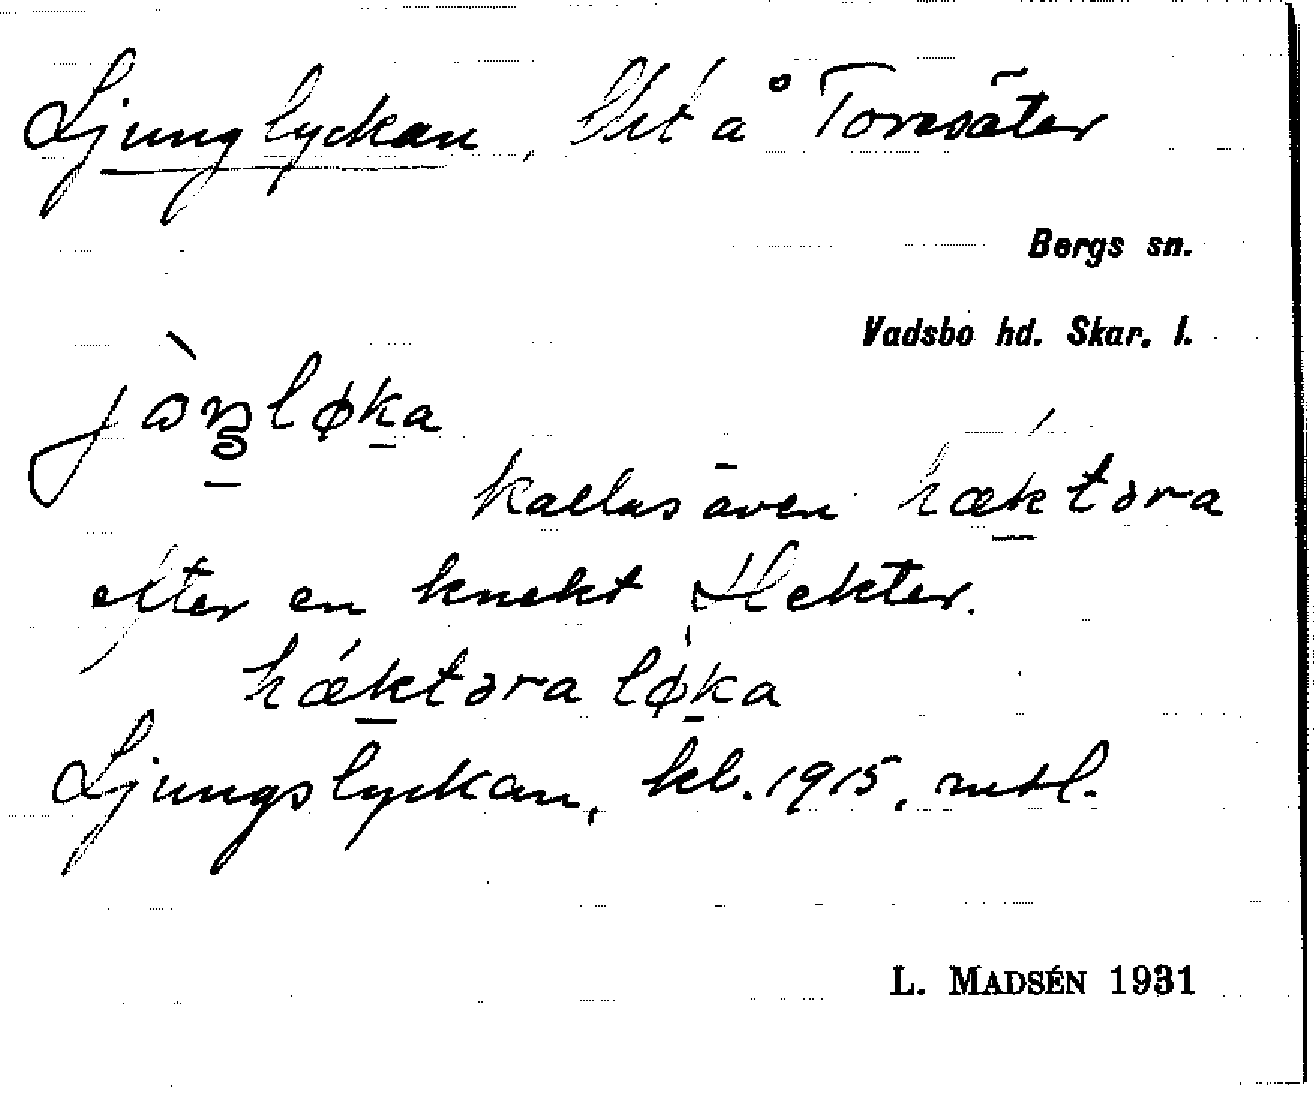 Ljunglyckan, lht å Torsäter
Bergs sn.
Vadsbo hd. Skar. l.
kallas även hæktəra
efter en knekt Hekter.
hæktəra løka
Ljungslyckan, kb. 1915, mtl.
L. MADSÉN 1931